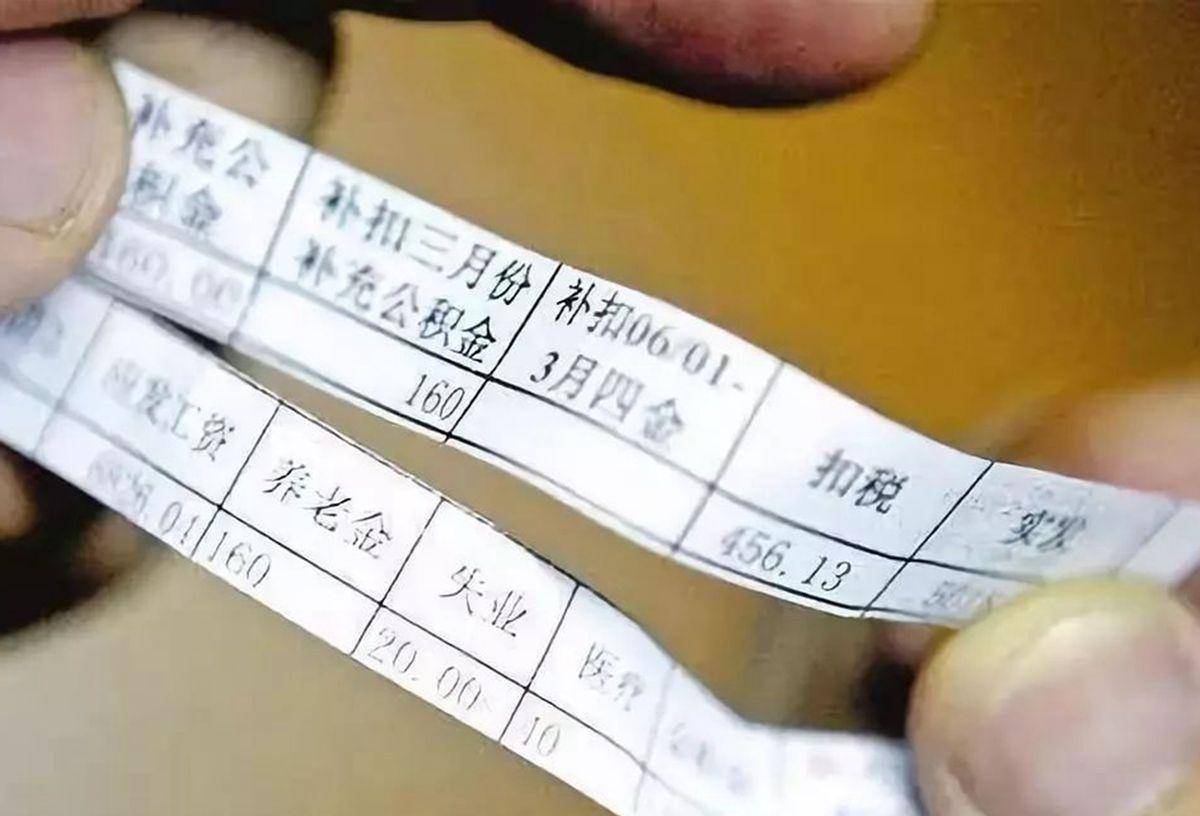 补充公
积金
160.00
补扣三月份
补充公积金
160
补扣06 01-
3月四金
扣税
456.13
实发
应发工资
养老金
160
失业
20.00
医疗
40